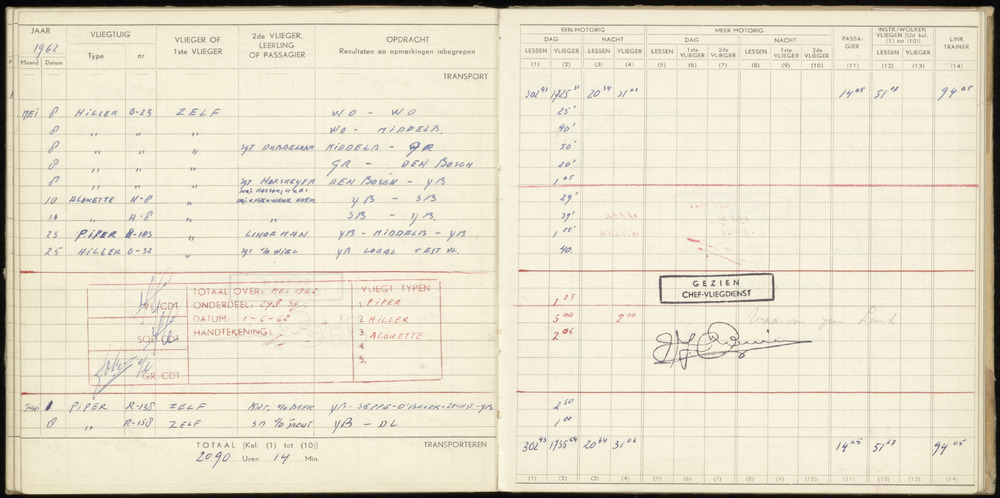 JAAR
1962
Maand Datum
VLIEGTUIG
Type nr
VLIEGER OF
1ste VLIEGER
2de VLIEGER,
LEERLING
OF PASSAGIER
OPDRACHT
Resultaten en opmerkingen inbegrepen
TRANSPORT
MEI 8 HILLER O-29 ZELF WO - WO
8 " " " WO - MIDDELB.
8 " " " SGT MIDDELB - GR
8 " " GR - DEN BOSCH
8 " " " SGT DEN BOSCH - YB
10 ALOUETTE H-8 " YB - SB
10 " H-8 " SB - YB.
23 PIPER R-103 " LINDEMAN YB - MIDDELB - YB
25 HILLER O-32 " SGT v/d WIEL YB LOCAL TEST VL.
CDT
SQ CDT
GR. CDT
TOTAAL OVER: MEI 1962
ONDERDEEL: 298 Sq
DATUM: 1-6-62
HANDTEKENING:
VLIEGT TYPEN
1. PIPER
2. HILLER
3. ALOUETTE
4.
5.
JUNI 1 PIPER R-138 ZELF YB - SEPPE -
8 " R-158 ZELF YB - DL
TOTAAL (Kol. (1) tot (10))
2090 Uren 14 Min.
TRANSPORTEREN
EEN-MOTORIG
DAG NACHT
LESSEN VLIEGER LESSEN VLIEGER
(1) (2) (3) (4)
MEER MOTORIG
DAG NACHT
LESSEN 1ste VLIEGER 2de VLIEGER LESSEN 1ste VLIEGER 2de VLIEGER
(5) (6) (7) (8) (9) (10)
PASSA-
GIER
(11)
INSTR./WOLKEN
VLIEGEN (Uit kol.
(1) tot (10))
LESSEN VLIEGER
(12) (13)
LINK
TRAINER
(14)
302 43 1725 20 54 14 05 51 94 05
25'
40'
50'
20'
1 05
29'
39'
1 25
40.
GEZIEN
CHEF-VLIEGDIENST
1 25
5 00 2 00
2 06
2 50
1 00
302 43 1735 20 54 31 14 05 51 94 05
(1) (2) (3) (4) (5) (6) (7) (8) (9) (10) (11) (12) (13) (14)